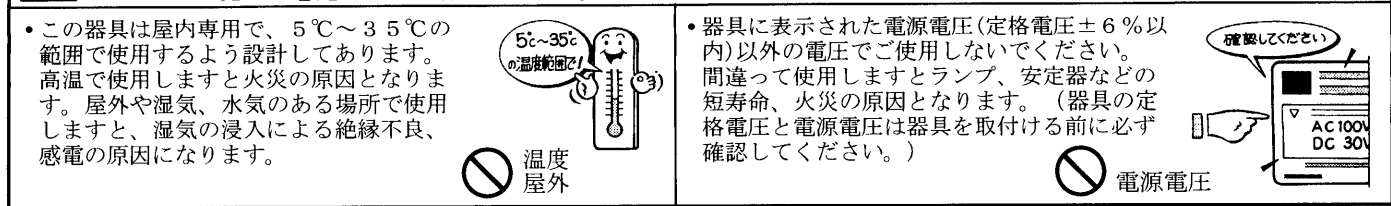 • この器具は屋内専用で、５℃～３５℃の
範囲で使用するよう設計してあります。
高温で使用しますと火災の原因となりま
す。屋外や湿気、水気のある場所で使用
しますと、湿気の浸入による絶縁不良、
感電の原因になります。
5℃~35℃
の温度範囲で!
温度
屋外
• 器具に表示された電源電圧(定格電圧±６％以
内)以外の電圧でご使用しないでください。
間違って使用しますとランプ、安定器などの
短寿命、火災の原因となります。（器具の定
格電圧と電源電圧は器具を取付ける前に必ず
確認してください。）
確認してください
AC 100V
DC 30V
電源電圧